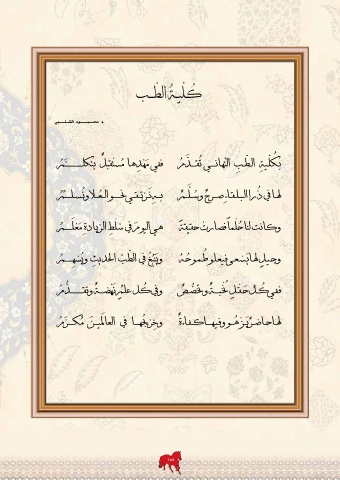 كُلّيةُ الطّب
د محمود الحليبي
بكُلّيةِ الطّبِ التّهاني تُقدَّمُ ففي مَهدِها مُستقبلٌ يتكلَّمُ
لها في ذُرا البلقاءِ صرحٌ وسُلَّمٌ به نرتقي نحو العُلا ونُسلِّمُ
وكانت لنا حُلماً فصارت حقيقةً هي اليومَ في سلط الريادة مَعْلَمُ
وجيلٍ لها يسعى فيعلو طُموحُهُ في الطّبِ الحديثِ ويُسهِمُ
ففي كُلِّ حقلٍ نُخبةٌ وتخصُّصٌ وفي كل علمٍ نهضةٌ وتقدُّمُ
لها حاضرٌ يزهو وفيها كفاءةٌ وخرّيجُها في العالَمينَ مُكرَّمُ